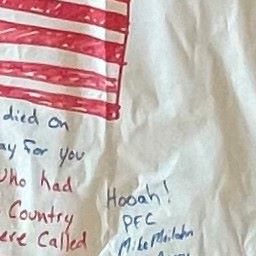 died on
ay For you
who had
Country
ere Called
Hooah!
PFC
Mike